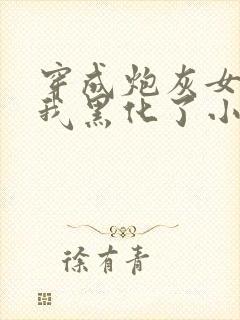 穿成炮灰女
我黑化了小
徐有青